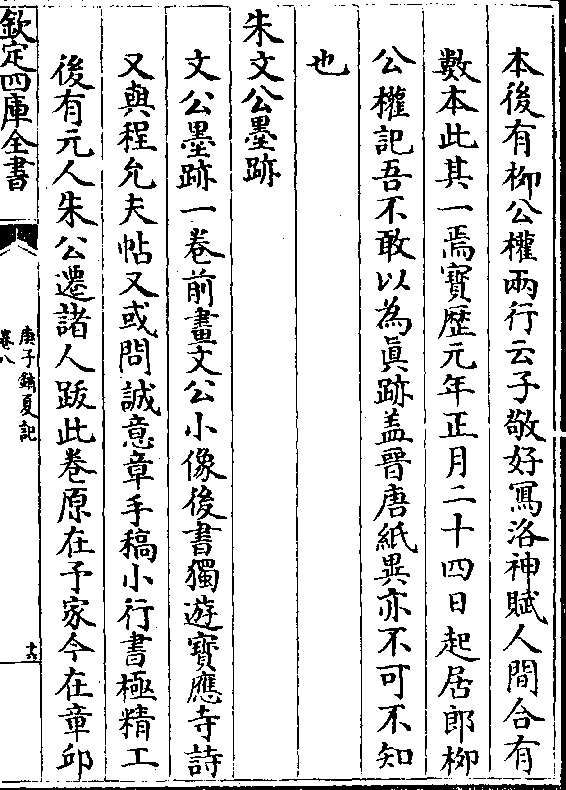 本後有柳公權兩行云子敬好寫洛神賦人間合有
數本此其一焉寶歷元年正月二十四日起居郎柳
公權記吾不敢以為眞跡盖晉唐紙異亦不可不知
也
朱文公墨跡
文公墨跡一卷前畫文公小像後書獨遊寶應寺詩
又與程允夫帖又或問誠意章手稿小行書極精工
後有元人朱公遷諸人跋此卷原在予家今在章邱
欽定四庫全書
庚子銷夏記
卷八
十六